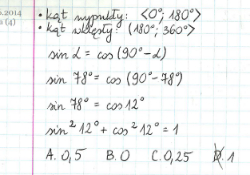 .2014
(4)
• kąt wypukły: <0°; 180°>
• kąt wklęsły: (180°; 360°>
sin α = cos (90° - α)
sin 78° = cos (90° - 78°)
sin 78° = cos 12°
sin² 12° + cos² 12° = 1
A. 0,5 B. 0 C. 0,25 D. 1